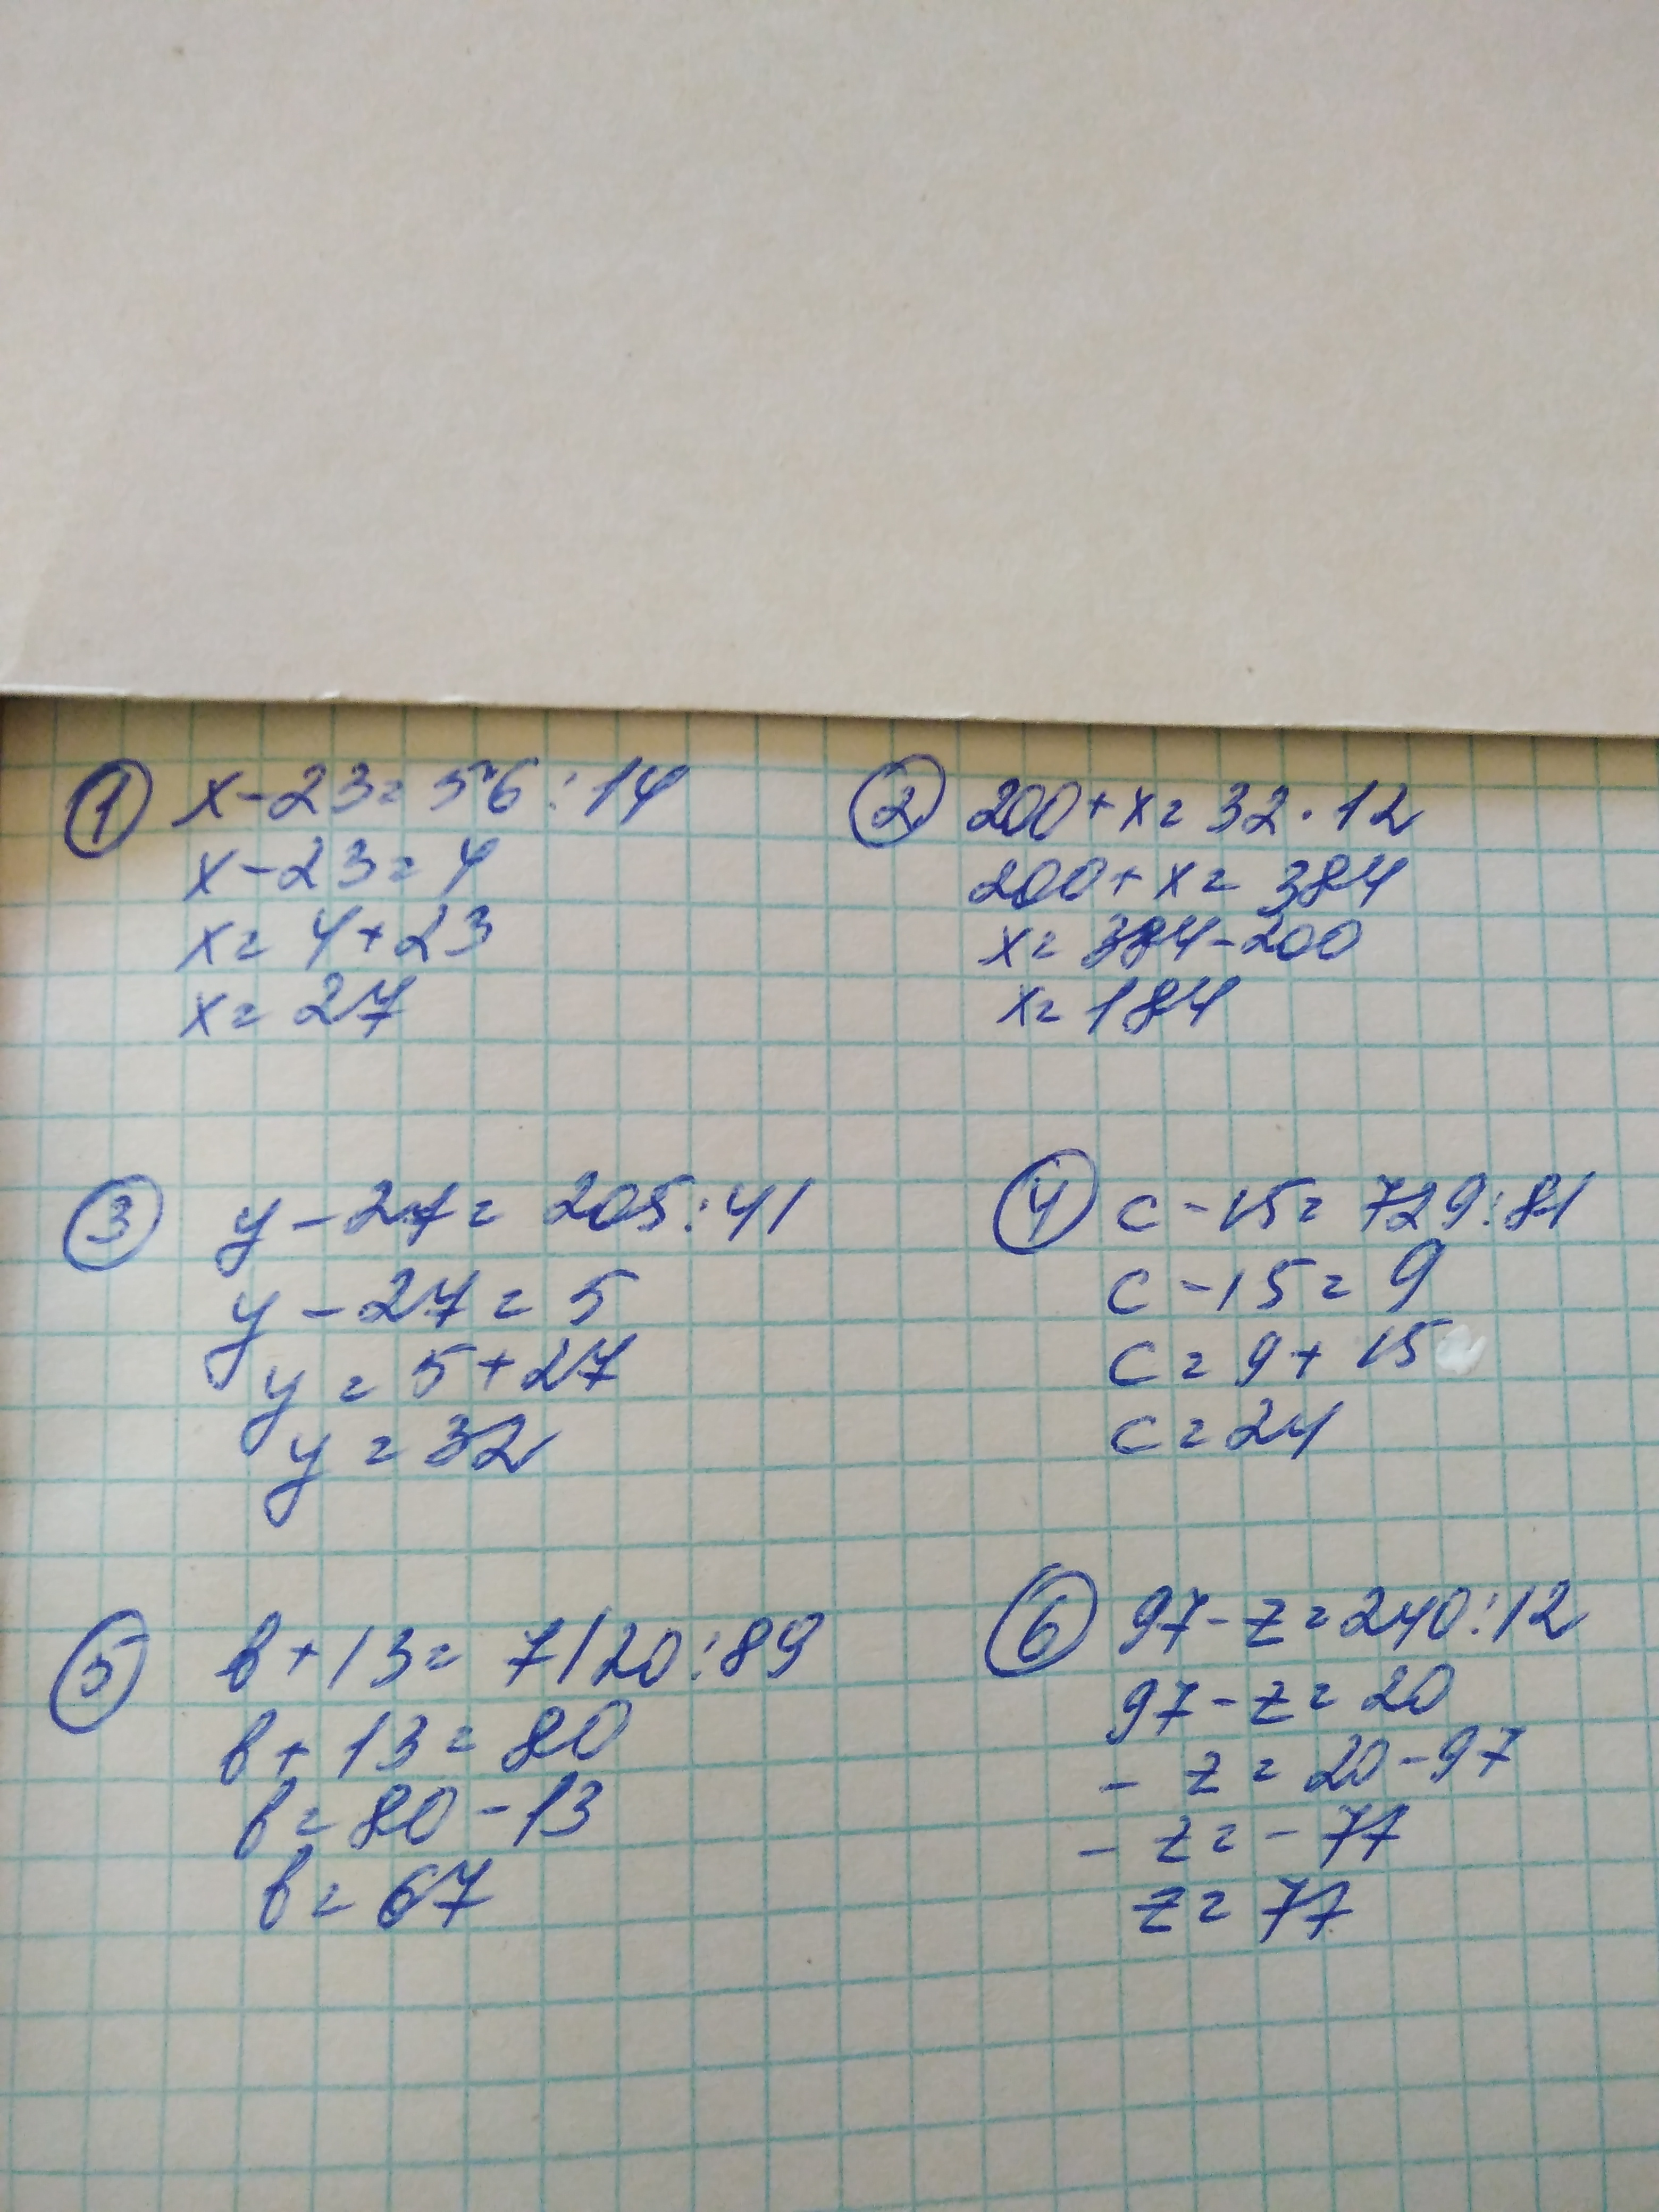 ① x-23=56:14
x-23=4
x=4+23
x=27
② 200+x=32·12
200+x=384
x=384-200
x=184
③ y-27=205:41
y-27=5
y=5+27
y=32
④ c-15=729:81
c-15=9
c=9+15
c=24
⑤ b+13=7120:89
b+13=80
b=80-13
b=67
⑥ 97-z=240:12
97-z=20
-z=20-97
-z=-77
z=77